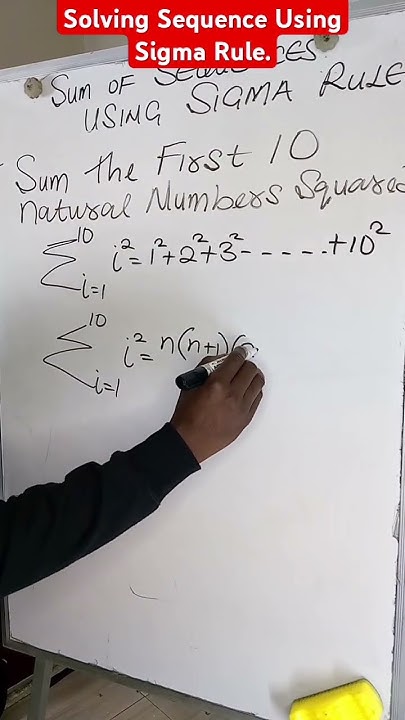 Solving Sequence Using
Sigma Rule.
SUM OF SEQUENCES
USING SIGMA RULE
Sum the First 10
natural Numbers Squared
10
∑ i² = 1² + 2² + 3² ------ + 10²
i=1
10
∑ i² = n(n+1)(
i=1